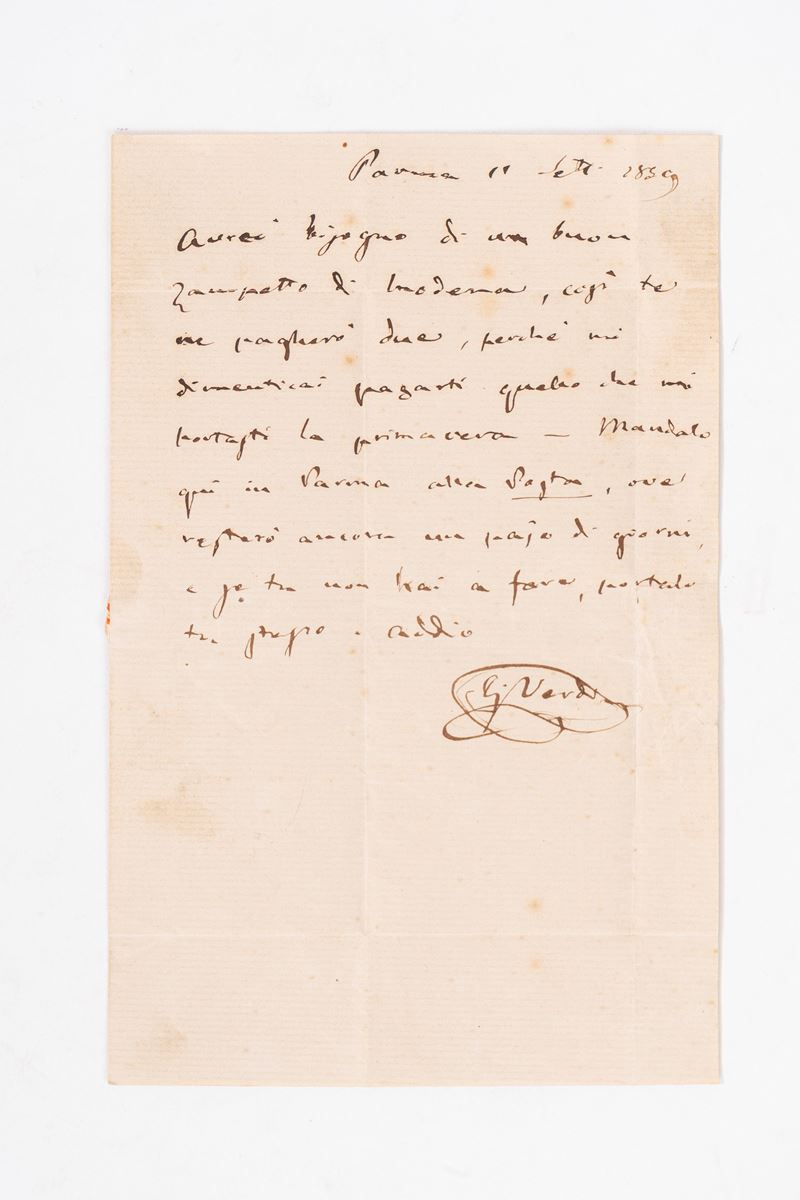 Parma 11 Sett. 1859
Avrei bisogno di un buon
zampetto di Modena, così te
ne pagherò due, perché mi
dimenticai pagarti quello che mi
portasti la primavera — Mandalo
qui in Parma alla Posta, ove
resterò ancora un pajo di giorni,
e se tu non hai a fare, portalo
tu stesso. addio
G. Verdi